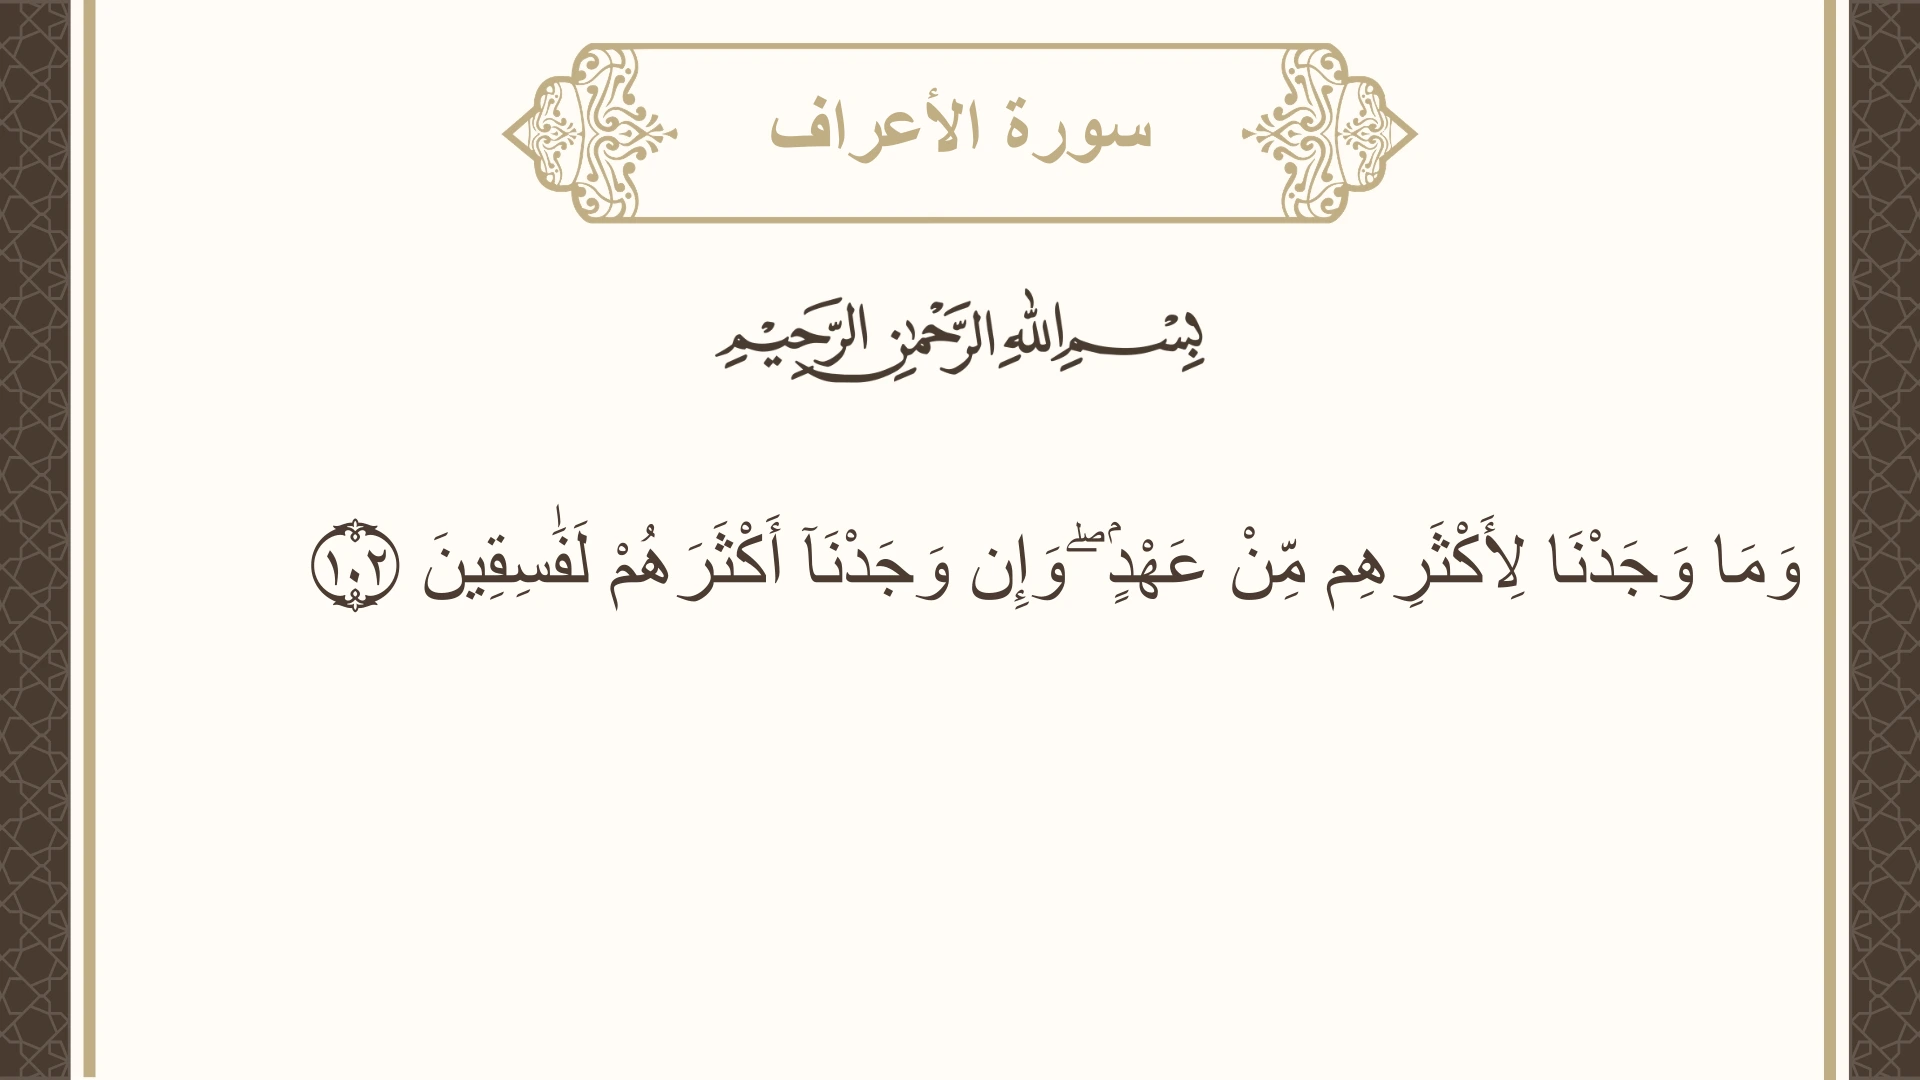 سورة الأعراف
بِسْمِ اللهِ الرَّحْمٰنِ الرَّحِيْمِ
وَمَا وَجَدْنَا لِأَكْثَرِهِم مِّنْ عَهْدٍۢ ۖ وَإِن وَجَدْنَآ أَكْثَرَهُمْ لَفَـٰسِقِينَ ١٠٢